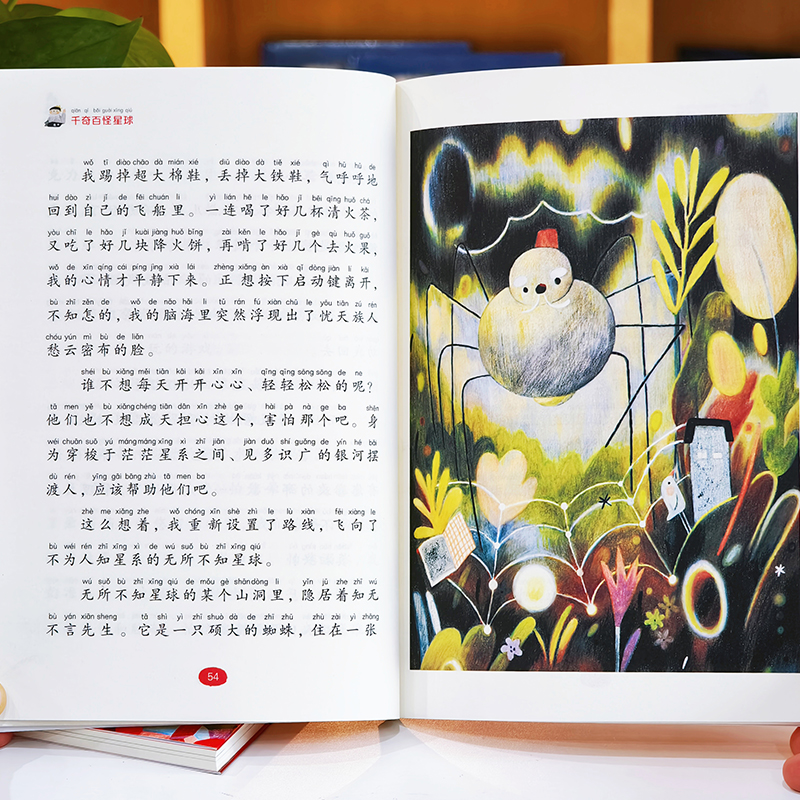 qiān qí bǎi guài xīng qiú
千奇百怪星球
wǒ tī diào chāo dà mián xié diū diào dà tiě xié qì hū hū de
我踢掉超大棉鞋，丢掉大铁鞋，气呼呼地
huí dào zì jǐ de fēi chuán li yì lián hē le hǎo jǐ bēi qīng huǒ chá
回到自己的飞船里。一连喝了好几杯清火茶，
yòu chī le hǎo jǐ kuài jiàng huǒ bǐng zài kěn le hǎo jǐ gè qù huǒ guǒ
又吃了好几块降火饼，再啃了好几个去火果，
wǒ de xīn qíng cái píng jìng xià lái zhèng xiǎng àn xià qǐ dòng jiàn lí kāi
我的心情才平静下来。正想按下启动键离开，
bù zhī zěn de wǒ de nǎo hǎi li tū rán fú xiàn chū le yōu tiān zú rén
不知怎的，我的脑海里突然浮现出了忧天族人
chóu yún mì bù de liǎn
愁云密布的脸。
shéi bù xiǎng měi tiān kāi kāi xīn xīn qīng qīng sōng sōng de ne
谁不想每天开开心心、轻轻松松的呢？
tā men yě bù xiǎng chéng tiān dān xīn zhè ge hài pà nà ge ba shēn
他们也不想成天担心这个，害怕那个吧。身
wéi chuān suō yú máng máng xīng xì zhī jiān jiàn duō shí guǎng de yín hé bǎi
为穿梭于茫茫星系之间、见多识广的银河摆
dù rén yīng gāi bāng zhù tā men ba
渡人，应该帮助他们吧。
zhè me xiǎng zhe wǒ chóng xīn shè zhì le lù xiàn fēi xiàng le
这么想着，我重新设置了路线，飞向了
bù wéi rén zhī xīng xì de wú suǒ bù zhī xīng qiú
不为人知星系的无所不知星球。
wú suǒ bù zhī xīng qiú de mǒu gè shān dòng li yǐn jū zhe zhī wú
无所不知星球的某个山洞里，隐居着知无
bù yán xiān sheng tā shì yì zhī shuò dà de zhī zhū zhù zài yì zhāng
不言先生。它是一只硕大的蜘蛛，住在一张
54